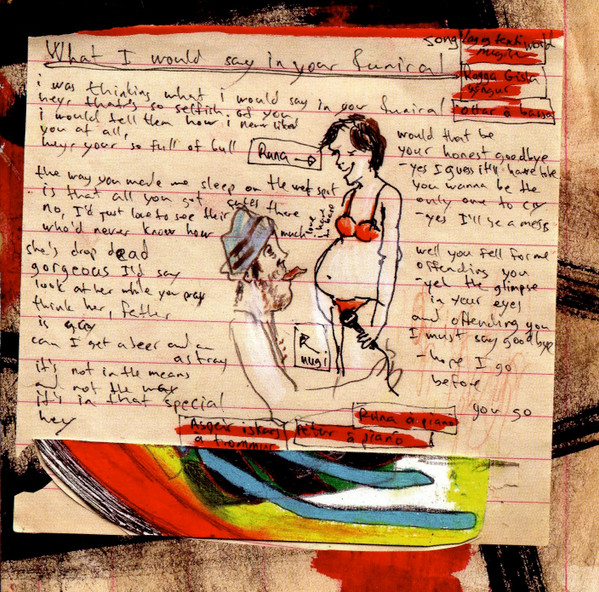 What I would say in your funiral
song
world
mugi
Ragga Gisla
gongur
ottar á bassa
i was thinking what i would say in your funiral
hey, thats so selfish of you
i would tell them how i never liked
you at all,
hey, your so full of bull
Runa →
the way you made me sleep on the wet spot
is that all you got
no, I'd just love to see their
who'd never know how much
love
i have
to
she's drop dead
gorgeous I'd say
look at her while you pray
think her, father
is gay
can I get a beer and a
astray
it's not in the means
and not the way
it's in that special
hey
mugi
would that be
your honest goodbye
- yes I guess it'll have to be
you wanna be the
only one to cry
- yes I'll be a mess
well you fell for me
offending you
- yeh the glimpse
in your eyes
and offending you
I must say goodbye
- hope I go
before
you go
Runa á piano
Petur á piano
á trommur